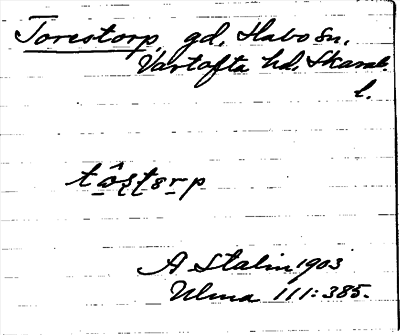 Torestorp, gd, Habo sn,
Vartofta hd. Skarab.
l.
tôstorp
A Stalin 1903
Ulma 111:385.